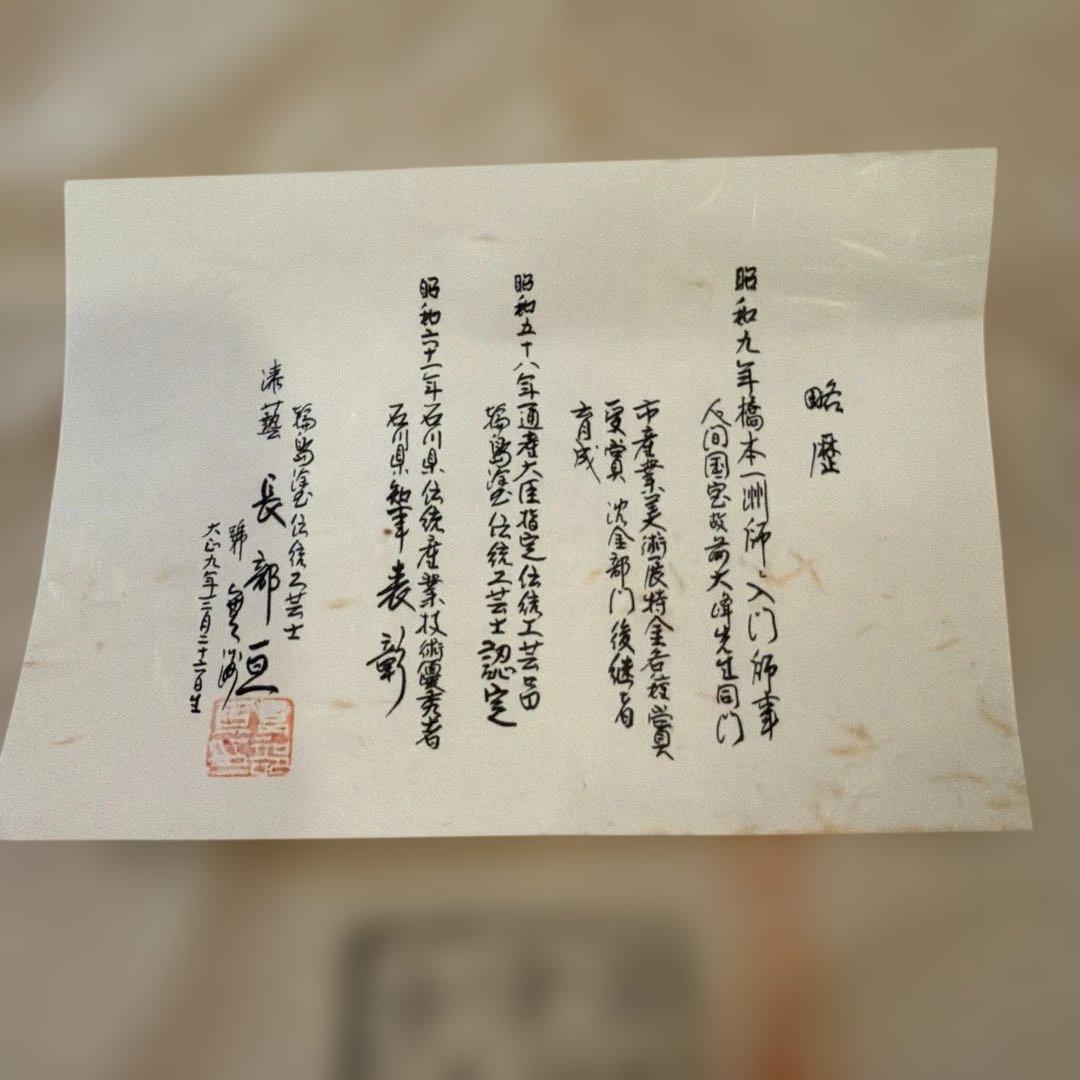 略歴
昭和九年橋本一洲師ニ入门 师事
人间国宝故前大峰先生同门
市産業美術展特金各種賞
受賞 沈金部门後継者
育成
昭和五十八年通産大臣指定伝統工芸品
輪島塗伝統工芸士認定
昭和六十一年石川県伝統産業技術優秀者
石川県知事表彰
輪島塗伝統工芸士
漆藝 長部亘
號
大正九年三月二十六日生